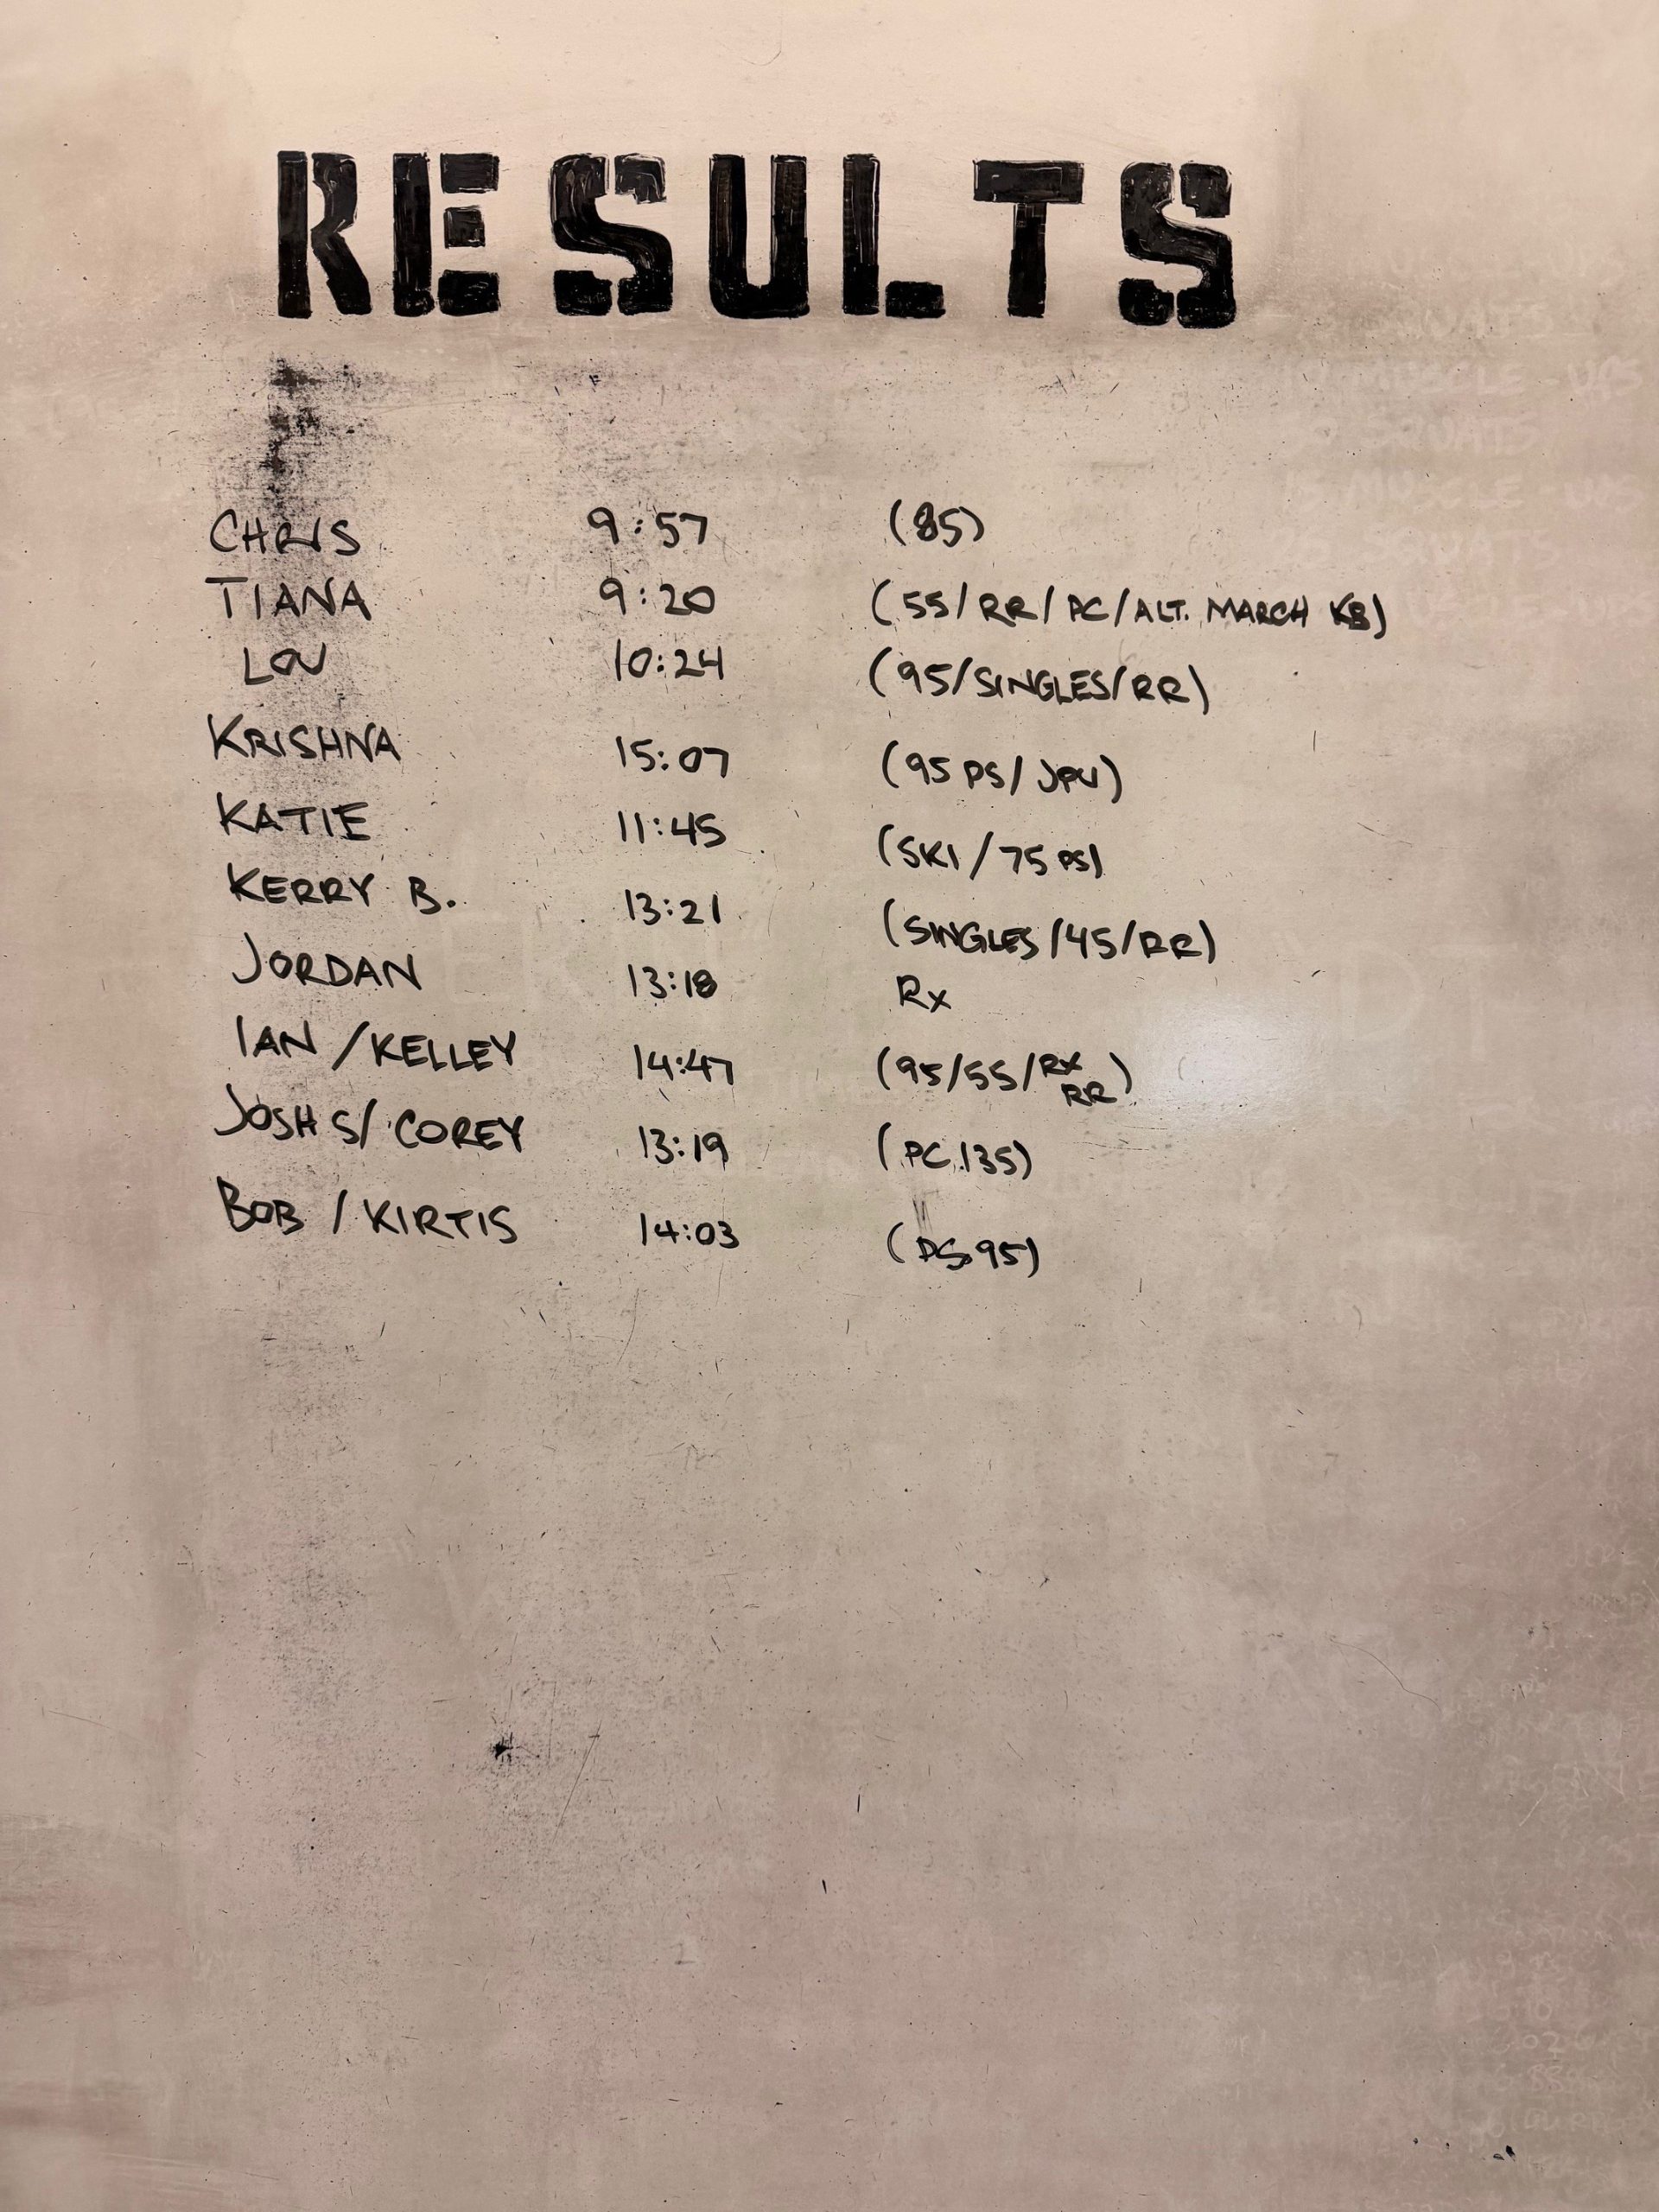 RESULTS
CHRIS 9:57 (85)
TIANA 9:20 (55/RR/PC/ALT. MARCH KB)
LOU 10:24 (95/SINGLES/RR)
KRISHNA 15:07 (95 PS/JPU)
KATIE 11:45 (SKI/75 PS)
KERRY B. 13:21 (SINGLES/45/RR)
JORDAN 13:18 Rx
IAN /KELLEY 14:47 (95/55/RX RR)
JOSH S/ COREY 13:19 (PC 135)
BOB / KIRTIS 14:03 (PS 95)